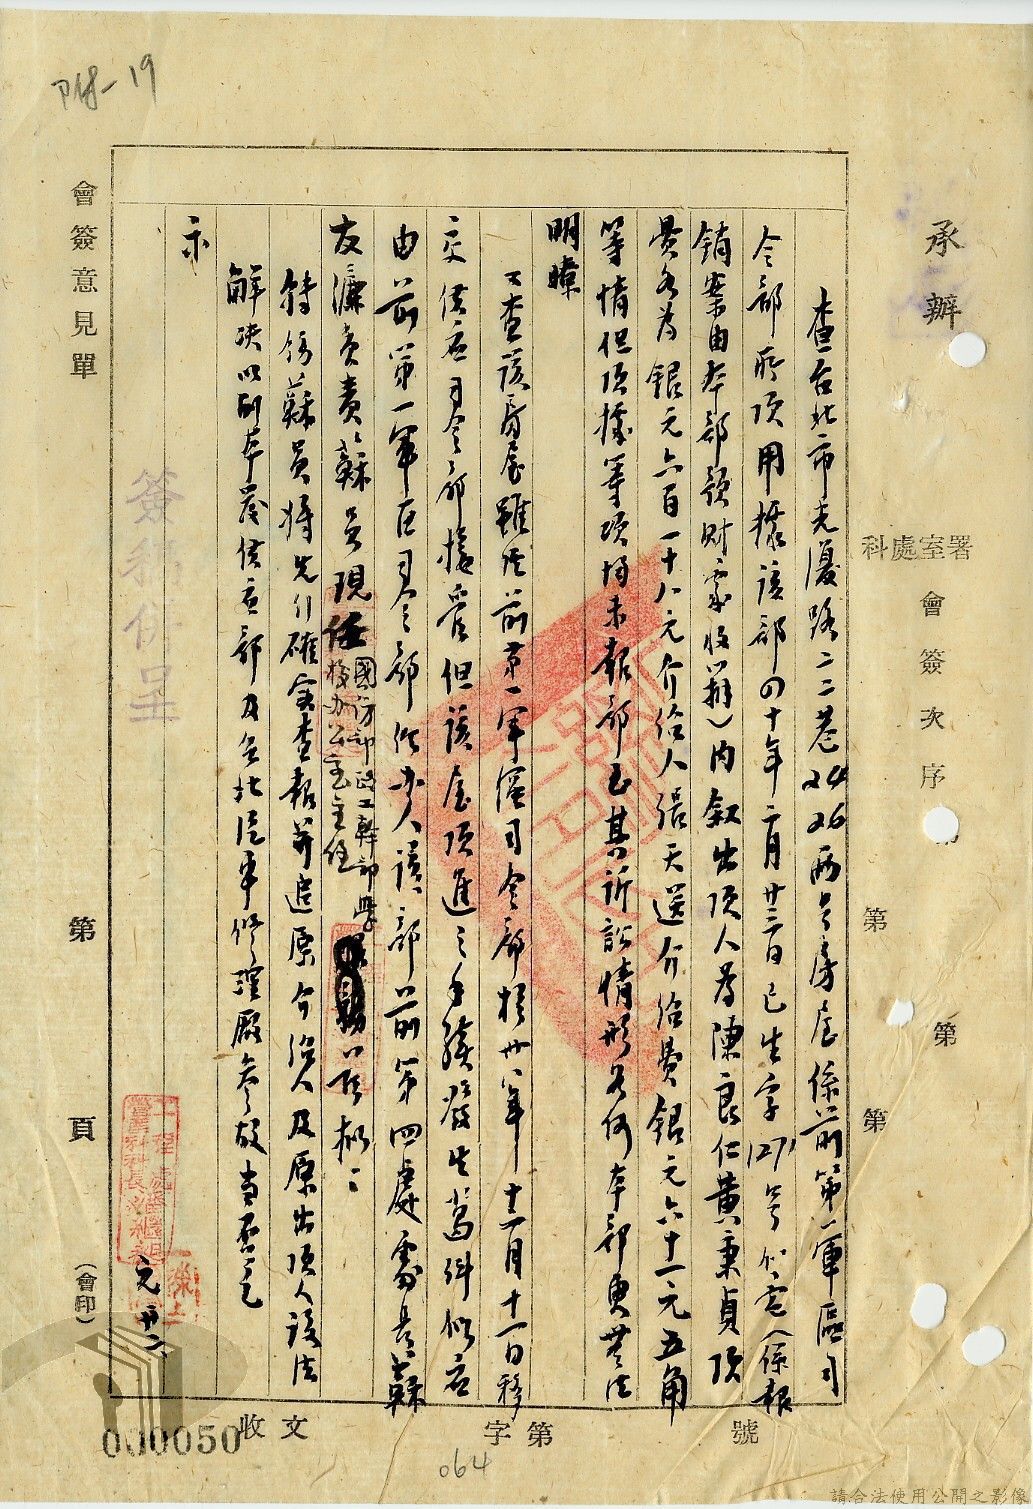 P48-19
承辦
科處室署
會簽次序
第
第
第
查台北市光復路二二巷24 26兩号房屋係前第一軍區司
令部所頂用據該部四十年二月廿三日已生字1271号公亳(係報
銷案由本部預財署收辦)內叙出頂人為陳良仁黃秉貞頂
費為銀元六百一十八元介紹人張天送介紹費銀元六十一元五角
等情但頂據等項均未報部至其訴訟情形為何本部更無法
明瞭
二查該房屋雖準前第一軍區司令部於卅八年十二月十一日移
交供应司令部接管但該屋頂進之手續發生葛糾似应
由前第一軍區司令部經办人該部前第四處處長蘇
友濂負責蘇員現任國防部政工幹部學
校办公室主任
特飭蘇員將先行確实查報並追原介紹人及原出頂人設法
解决以副本發供应部及台北汽車修理廠參放當否乞
示
簽稿併呈
元廿六
會簽意見單
第
頁
(會印)
收文
字第
號
000050
064
請合法使用公開之影像